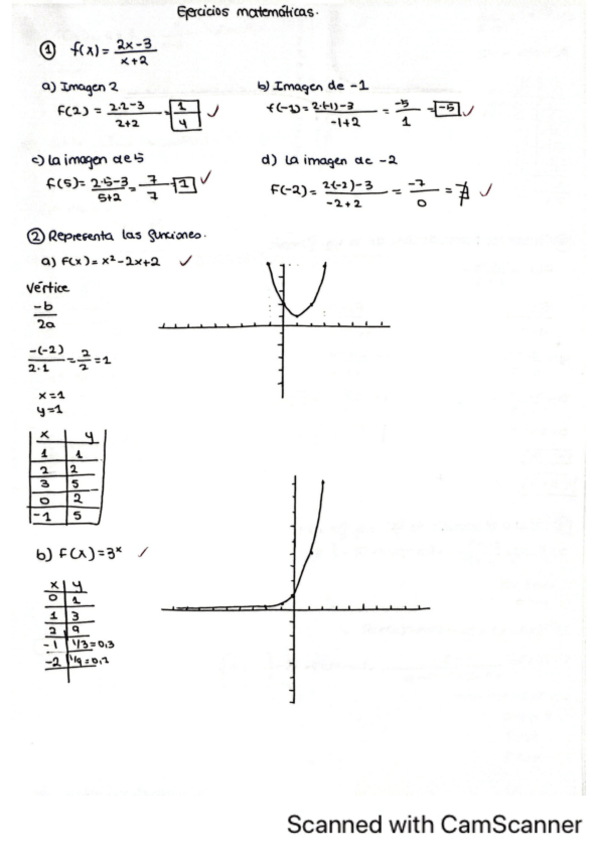 Ejercicios matemáticas.
① f(x) = 2x-3/x+2
a) Imagen 2
f(2) = 2·2-3/2+2 = 1/4 ✓
b) Imagen de -1
f(-1) = 2·(-1)-3/-1+2 = -5/1 = -5 ✓
c) La imagen de 5
f(5) = 2·5-3/5+2 = 7/7 = 1 ✓
d) La imagen de -2
f(-2) = 2(-2)-3/-2+2 = -7/0 = ∄ ✓
② Representa las funciones.
a) f(x) = x²-2x+2 ✓
Vértice
-b/2a
-(-2)/2·1 = 2/2 = 1
x=1
y=1
x y
1 1
2 2
3 5
0 2
-1 5
b) f(x) = 3ˣ ✓
x y
0 1
1 3
2 9
-1 1/3=0,3
-2 1/9=0,1
Scanned with CamScanner